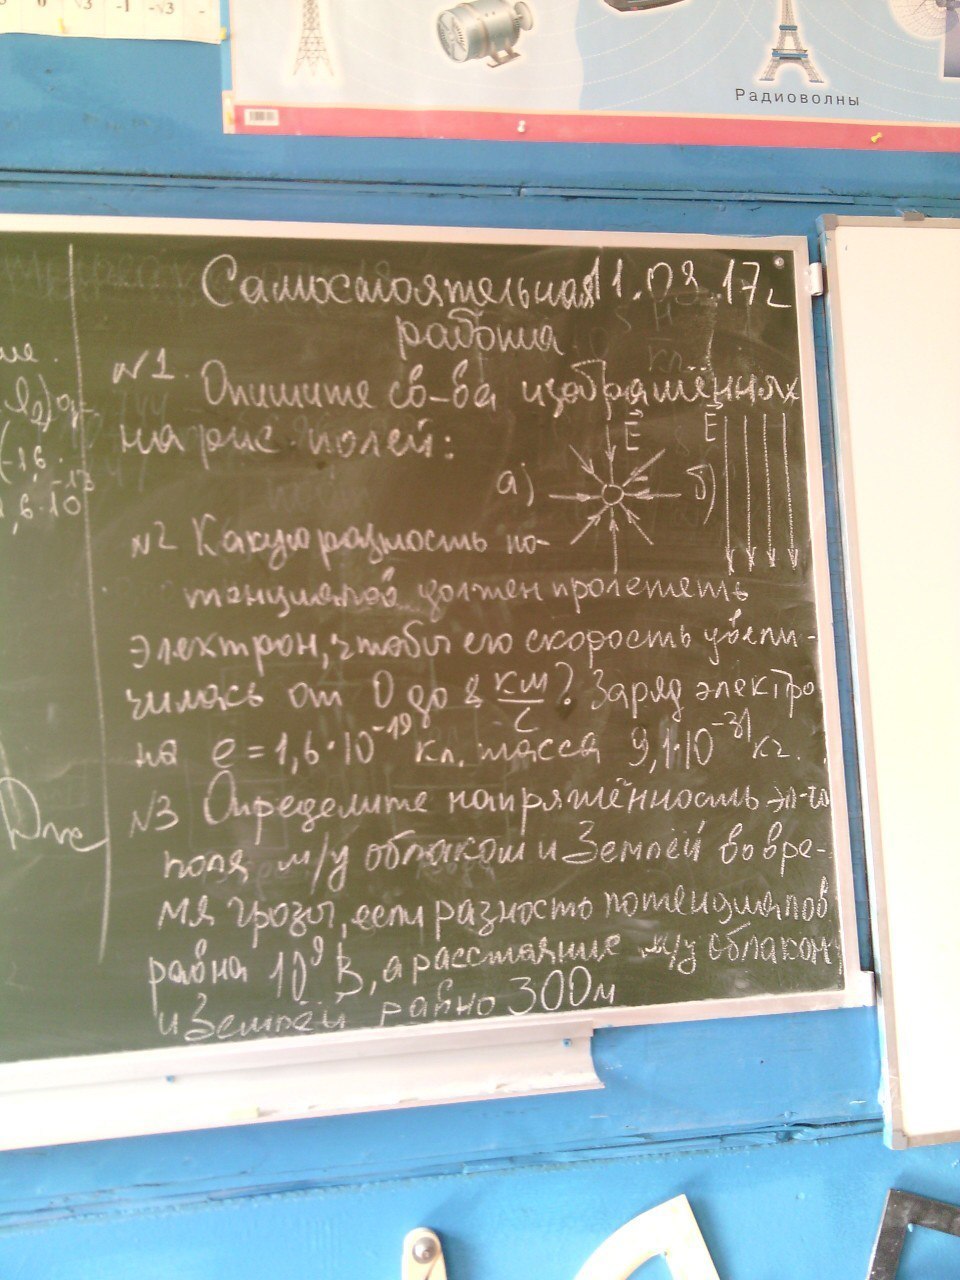 0 √3 -1 -√3 -
Радиоволны
Самостоятельная 11.03.17г
работа
№1. Опишите св-ва изображённых
на рис. полей:
E E
а) б)
№2 Какую разность по-
тенциалов должен пролететь
электрон, чтобы его скорость увели-
чилась от 0 до 8 км/с? Заряд электро
на e = 1,6·10⁻¹⁹ Кл, масса 9,1·10⁻³¹ кг.
№3 Определите напряжённость эл-го
поля м/у облаком и Землёй во вре-
мя грозы, если разность потенциалов
равна 10⁹ В, а расстояние м/у облаком
и Землёй равно 300м